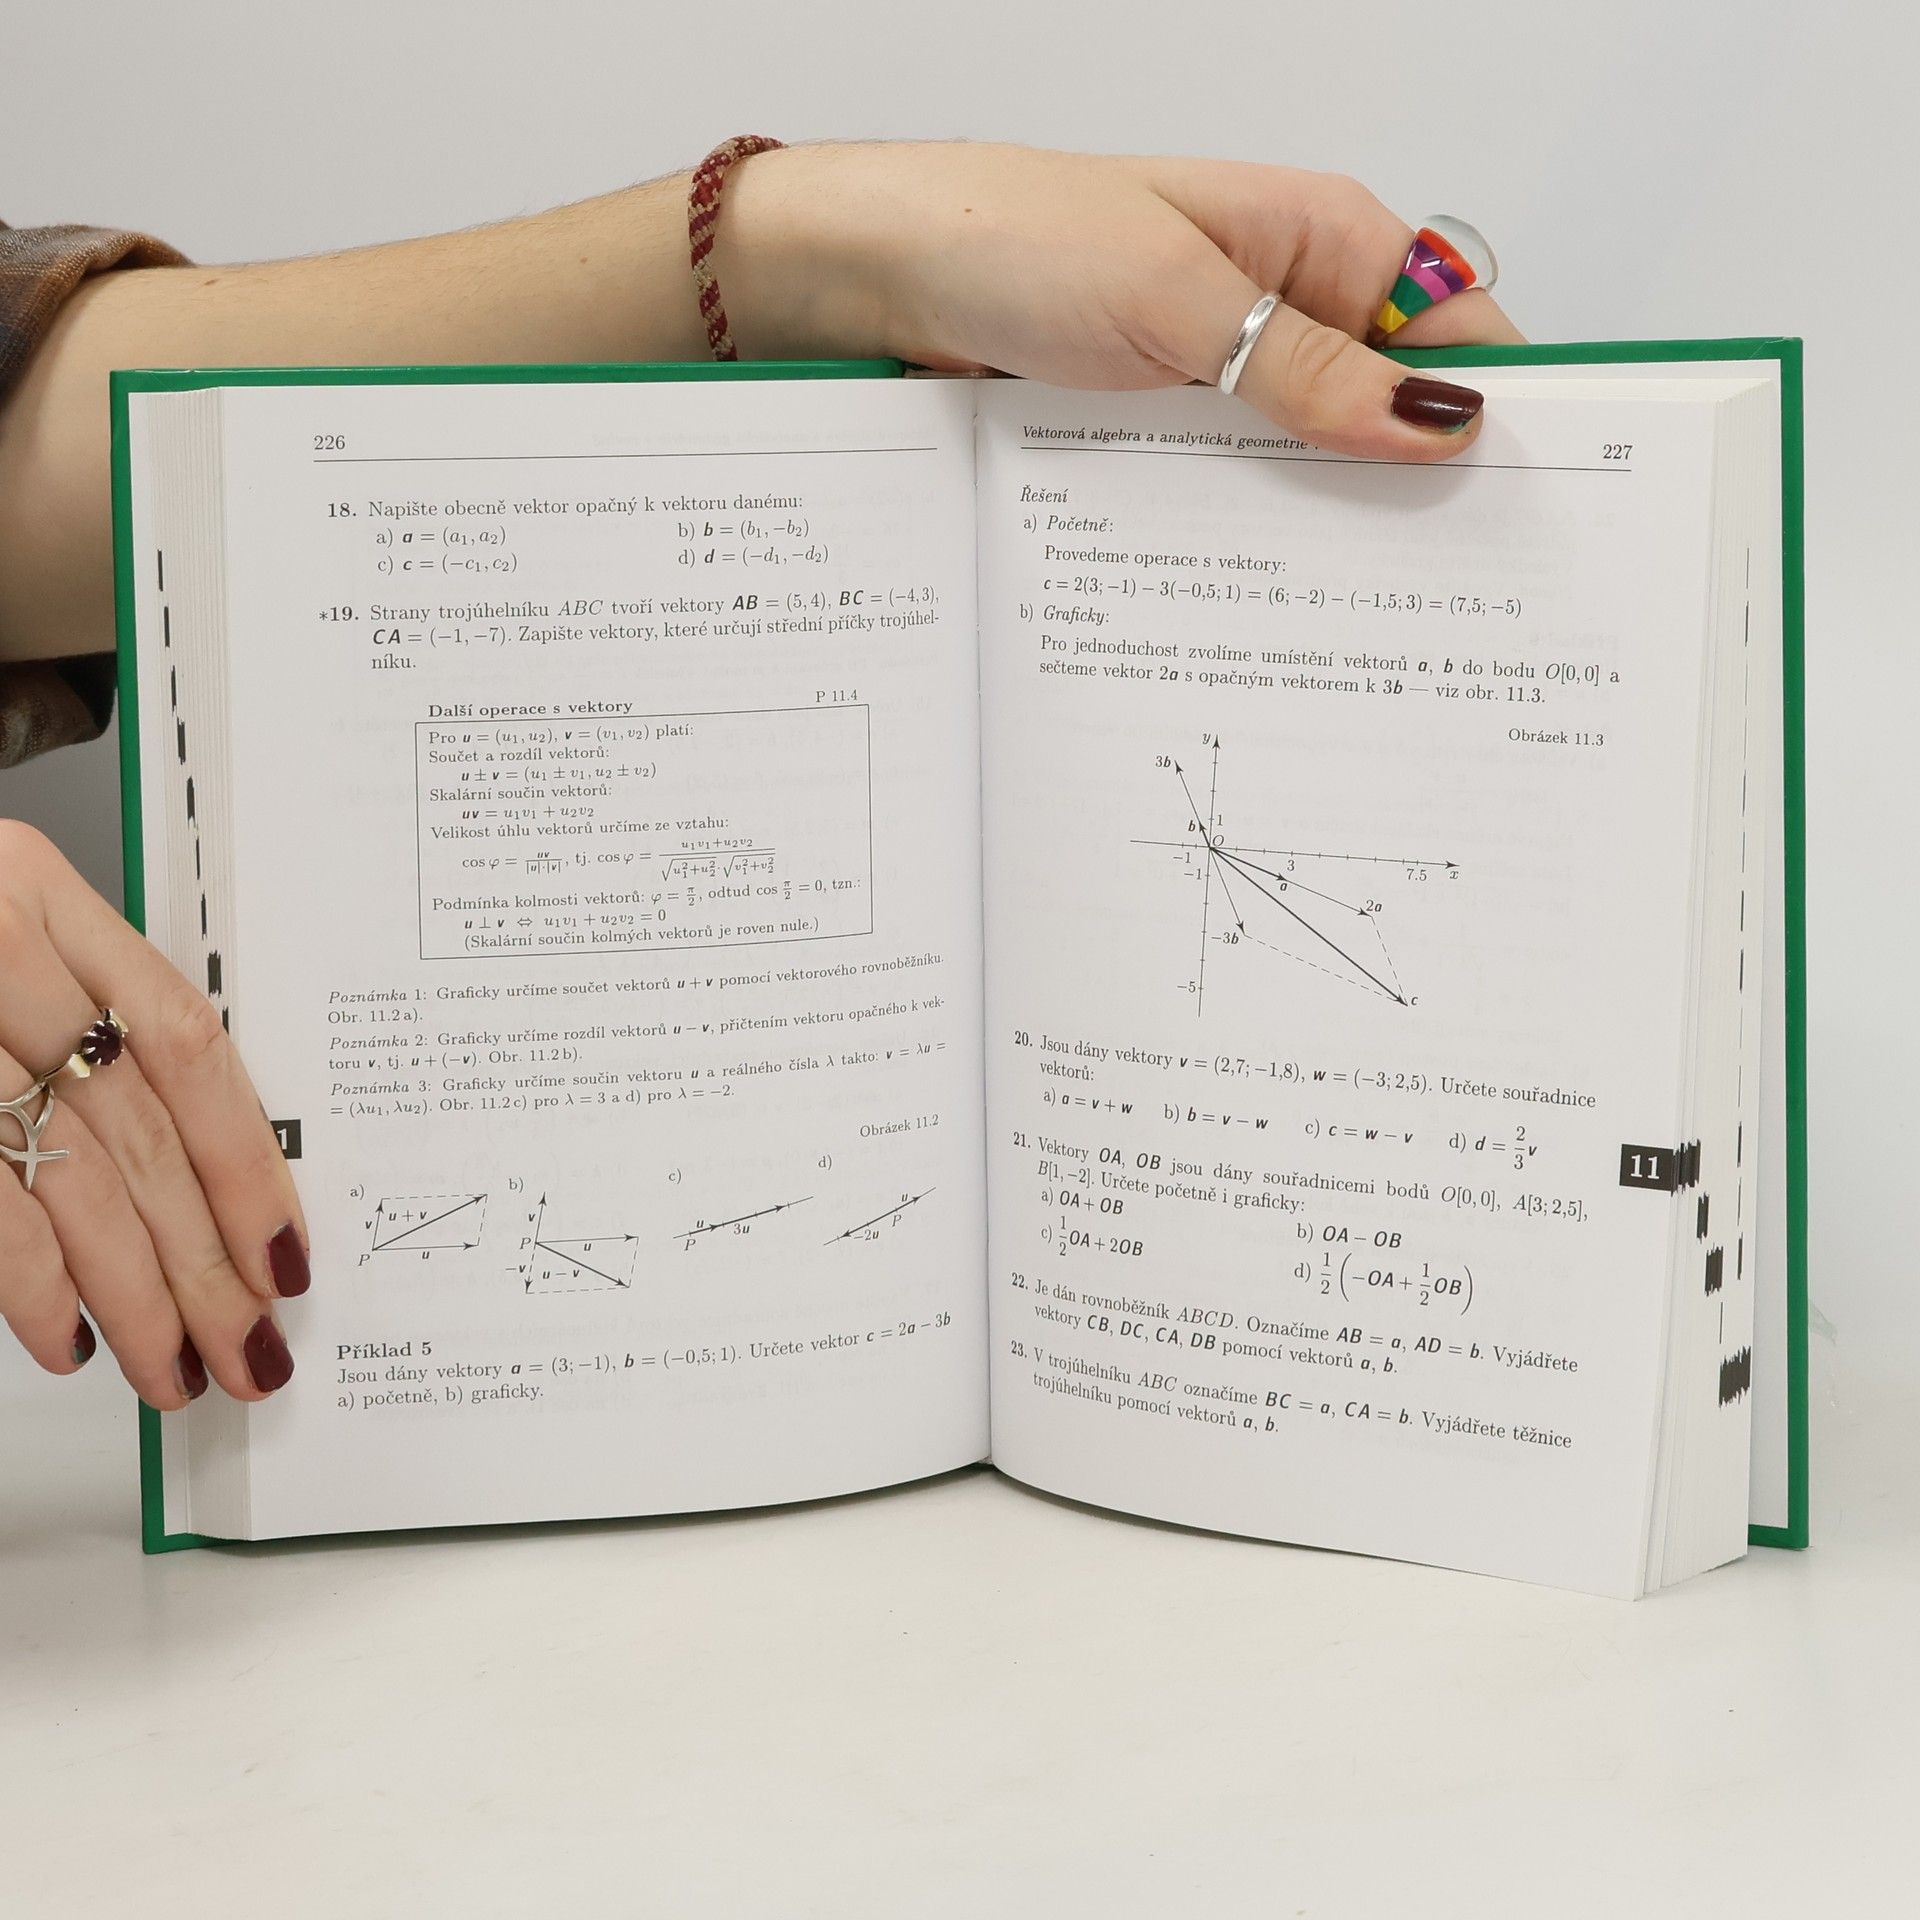 226
18. Napište obecně vektor opačný k vektoru danému:
a) a = (a₁, a₂) b) b = (b₁, −b₂)
c) c = (−c₁, c₂) d) d = (−d₁, −d₂)
*19. Strany trojúhelníku ABC tvoří vektory AB = (5, 4), BC = (−4, 3),
CA = (−1, −7). Zapište vektory, které určují střední příčky trojúhel-
níku.
Další operace s vektory P 11.4
Pro u = (u₁, u₂), v = (v₁, v₂) platí:
Součet a rozdíl vektorů:
u ± v = (u₁ ± v₁, u₂ ± v₂)
Skalární součin vektorů:
uv = u₁v₁ + u₂v₂
Velikost úhlu vektorů určíme ze vztahu:
cos φ = uv/(|u|·|v|), tj. cos φ = (u₁v₁+u₂v₂)/(√(u₁²+u₂²)·√(v₁²+v₂²))
Podmínka kolmosti vektorů: φ = π/2, odtud cos π/2 = 0, tzn.:
u ⊥ v ⇔ u₁v₁ + u₂v₂ = 0
(Skalární součin kolmých vektorů je roven nule.)
Poznámka 1: Graficky určíme součet vektorů u + v pomocí vektorového rovnoběžníku.
Obr. 11.2 a).
Poznámka 2: Graficky určíme rozdíl vektorů u − v, přičtením vektoru opačného k vek-
toru v, tj. u + (−v). Obr. 11.2 b).
Poznámka 3: Graficky určíme součin vektoru u a reálného čísla λ takto: v = λu =
= (λu₁, λu₂). Obr. 11.2 c) pro λ = 3 a d) pro λ = −2.
Obrázek 11.2
a) b) c) d)
v u + v u P
v P u −v u − v
u P 3u
u P −2u
Příklad 5
Jsou dány vektory a = (3; −1), b = (−0,5; 1). Určete vektor c = 2a − 3b
a) početně, b) graficky.
1
Vektorová algebra a analytická geometrie
227
Řešení
a) Početně:
Provedeme operace s vektory:
c = 2(3; −1) − 3(−0,5; 1) = (6; −2) − (−1,5; 3) = (7,5; −5)
b) Graficky:
Pro jednoduchost zvolíme umístění vektorů a, b do bodu O[0, 0] a
sečteme vektor 2a s opačným vektorem k 3b — viz obr. 11.3.
Obrázek 11.3
y
3b
1
b O
−1 3 7.5 x
−1
a
2a
−3b
−5
c
20. Jsou dány vektory v = (2,7; −1,8), w = (−3; 2,5). Určete souřadnice
vektorů:
a) a = v + w b) b = v − w c) c = w − v d) d = 2/3 v
21. Vektory OA, OB jsou dány souřadnicemi bodů O[0, 0], A[3; 2,5],
B[1, −2]. Určete početně i graficky:
a) OA + OB b) OA − OB
c) 1/2 OA + 2OB d) 1/2 (−OA + 1/2 OB)
22. Je dán rovnoběžník ABCD. Označíme AB = a, AD = b. Vyjádřete
vektory CB, DC, CA, DB pomocí vektorů a, b.
23. V trojúhelníku ABC označíme BC = a, CA = b. Vyjádřete těžnice
trojúhelníku pomocí vektorů a, b.
11